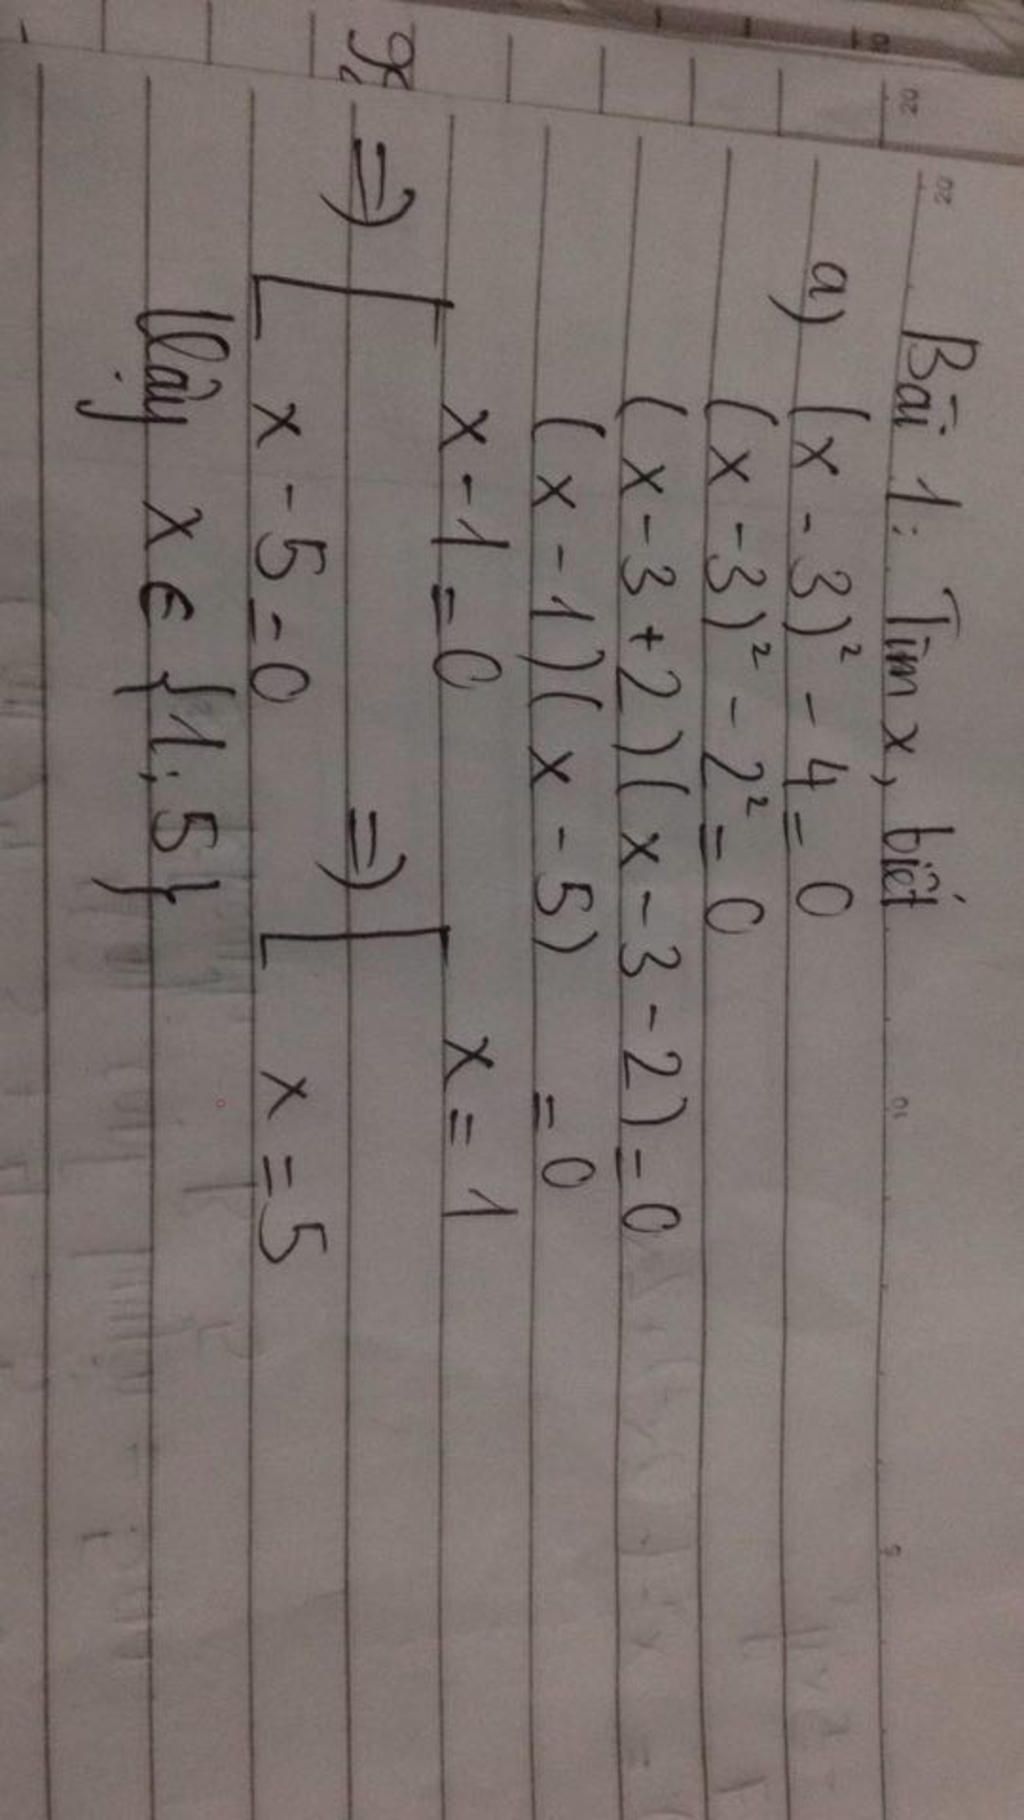 Bài 1: Tìm x, biết
a) (x - 3)² - 4 = 0
(x - 3)² - 2² = 0
(x - 3 + 2)(x - 3 - 2) = 0
(x - 1)(x - 5) = 0
=> [ x - 1 = 0 => [ x = 1
x - 5 = 0 x = 5
Vậy x ∈ {1; 5}